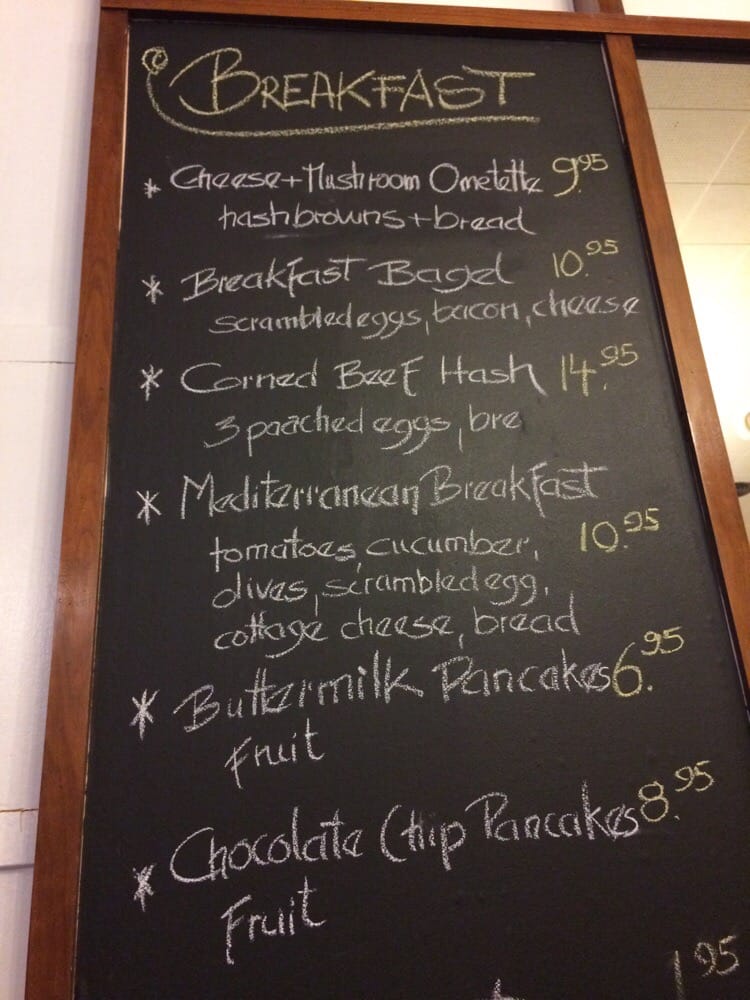 BREAKFAST
* Cheese + Mushroom Omelette 9.95
hashbrowns + bread
* Breakfast Bagel 10.95
scrambled eggs, bacon, cheese
* Corned Beef Hash 14.95
3 poached eggs, bre
* Mediterranean Breakfast
tomatoes, cucumber, 10.95
olives, scrambled egg,
cottage cheese, bread
* Buttermilk Pancakes 6.95
Fruit
* Chocolate Chip Pancakes 8.95
Fruit
1 95